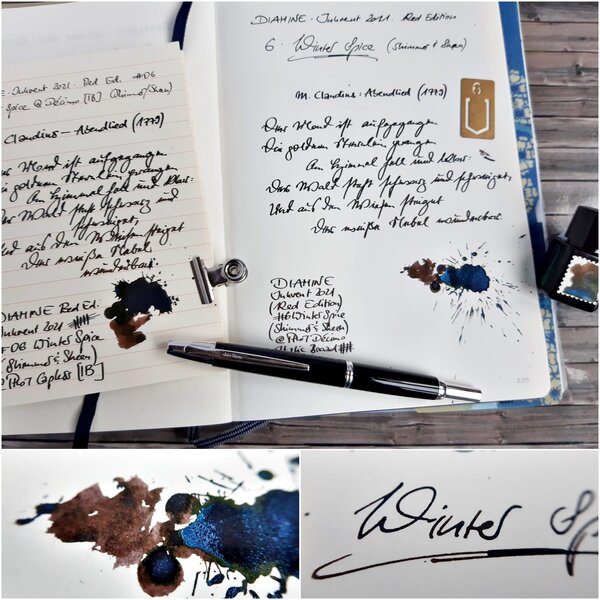 DIAMINE · Inkvent 2021 · Red Edition
6. Winter Spice (Shimmer & Sheen)
M. Claudius: Abendlied (1779)
Der Mond ist aufgegangen
Die goldnen Sternlein prangen
Am Himmel hell und klar.
Der Wald steht schwarz und schweiget,
Und aus den Wiesen steiget
Der weiße Nebel wunderbar.
DIAMINE
Inkvent 2021
(Red Edition)
#6 Winter Spice
(Shimmer & Sheen)
@ Pilot Décimo
235
6
Inkvent 2021 - Red Ed. #06
Spice @ Décimo [IB] (Shimmer/Sheen)
Claudius – Abendlied (1779)
Mond ist aufgegangen
Die goldnen Sternlein prangen
Am Himmel hell und klar.
Der Wald steht schwarz und
schweiget,
und aus den Wiesen steiget
Der weiße Nebel
wunderbar.
DIAMINE Red Ed.
Inkvent 2021
#06 Winter Spice
(Shimmer & Sheen)
Pilot Capless [IB]
Winter Sp